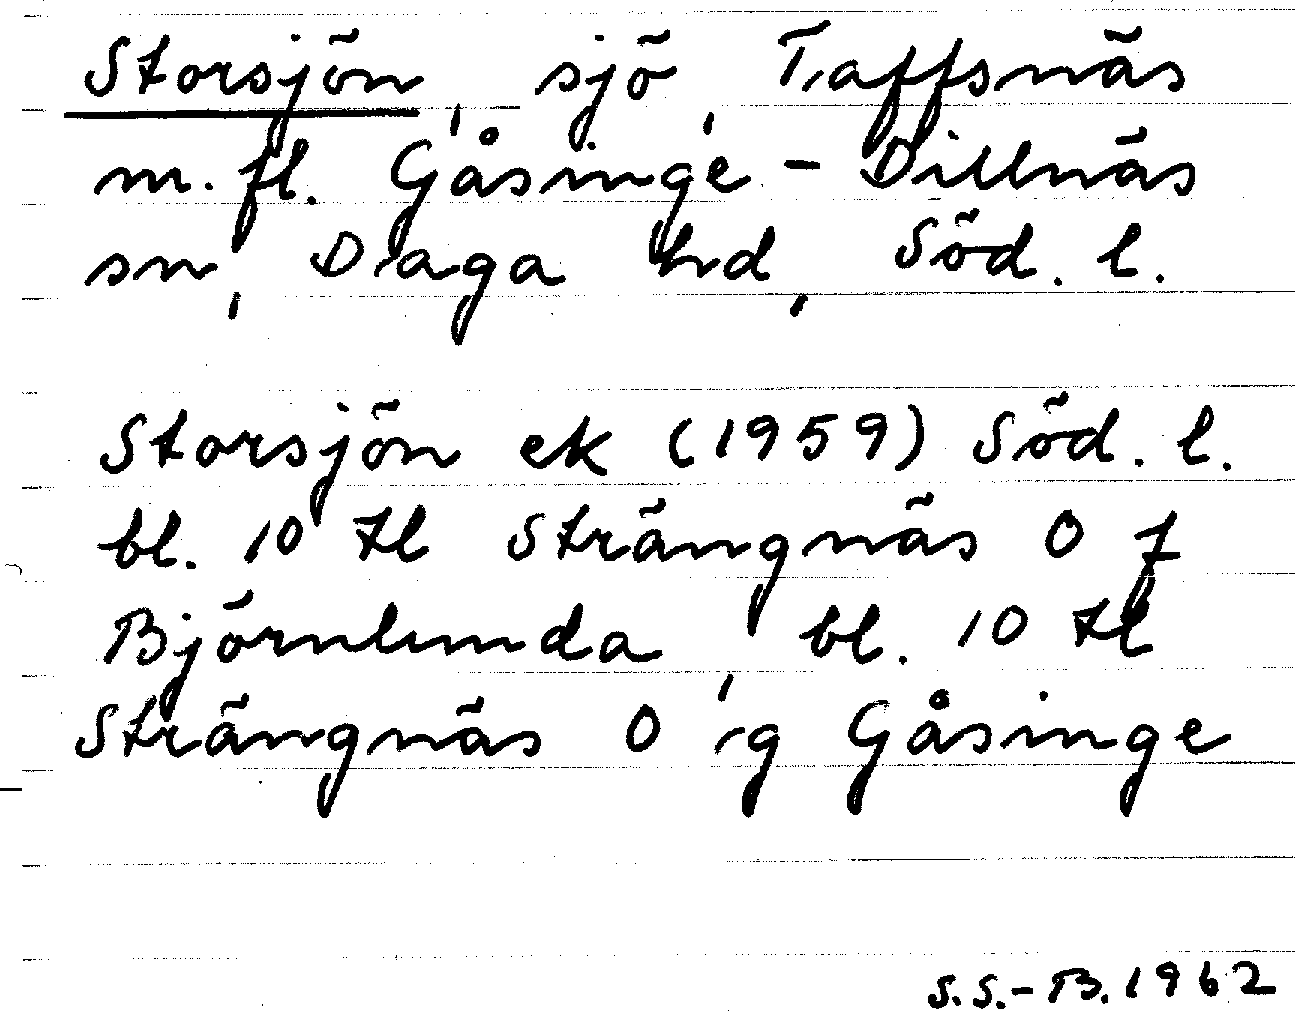 Storsjön, sjö, Taffsnäs
m. fl. Gåsinge - Dillnäs
sn, Daga hd, Söd. l.
Storsjön ek (1959) Söd. l.
bl. 10 tl Strängnäs O f
Björnlunda, bl. 10 tl
Strängnäs O ig Gåsinge
S.S.-B. 1962